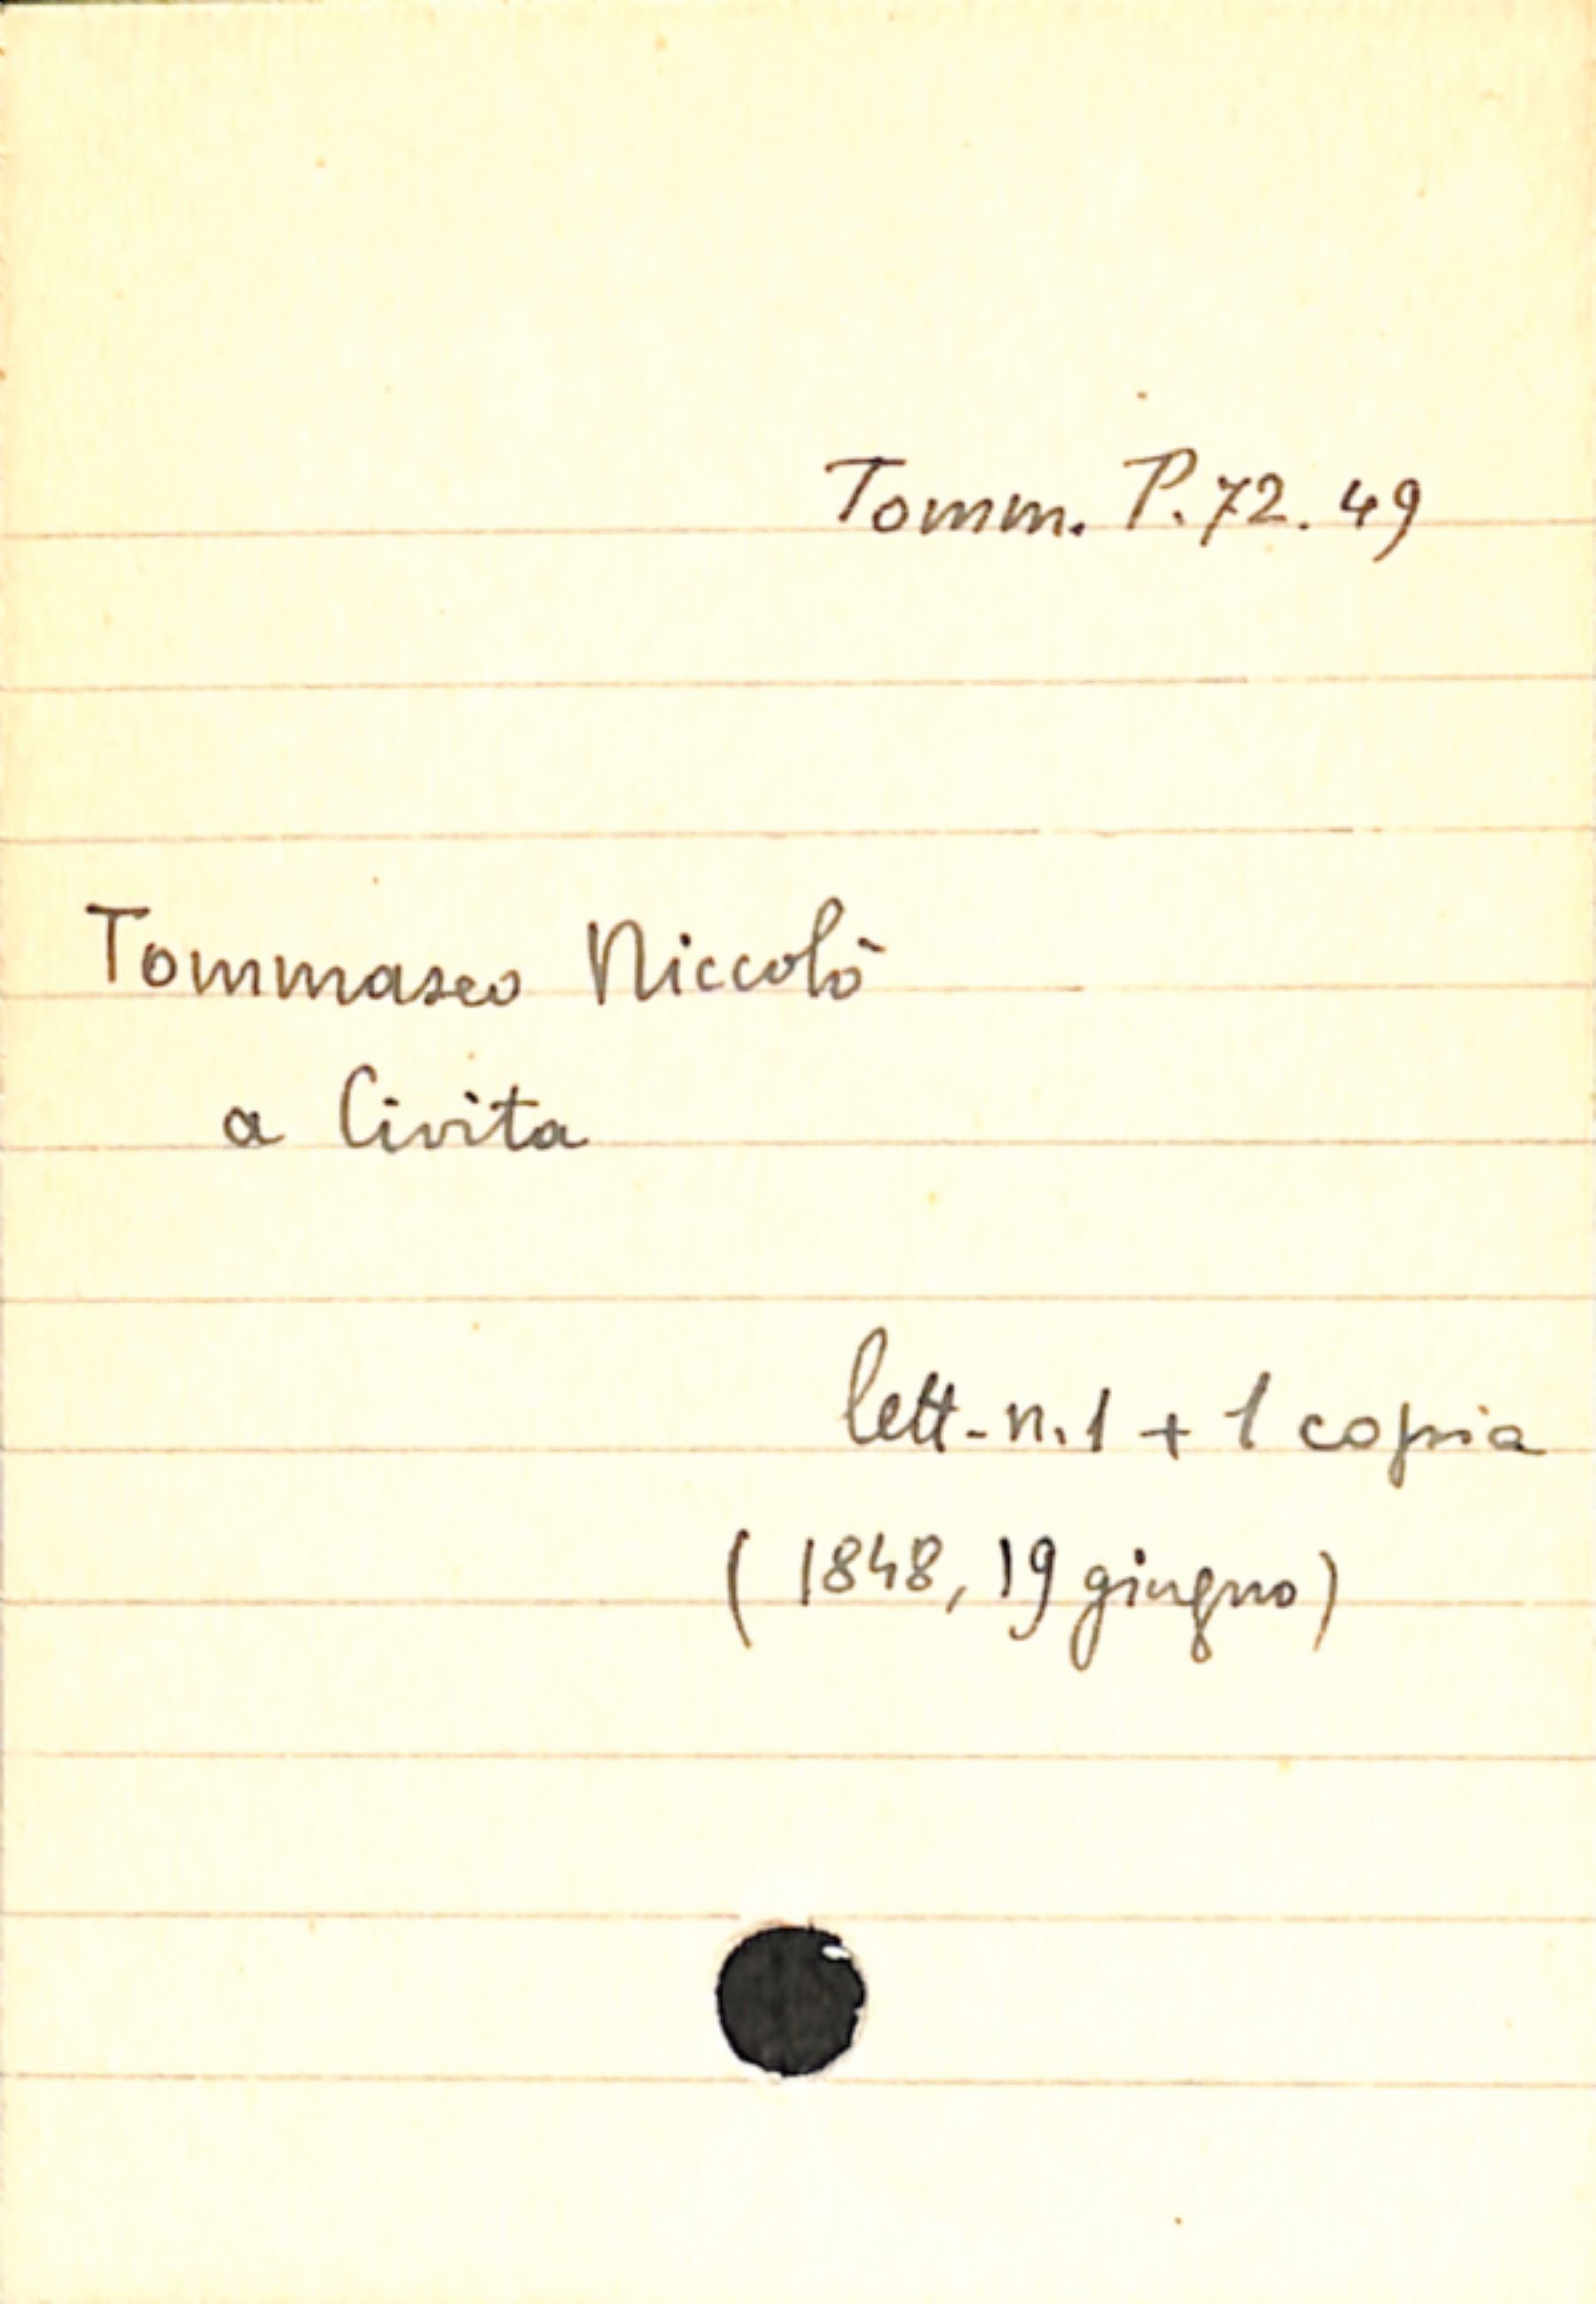 Tomm. P.72.49
Tommaseo Niccolò
a Civita
lett. n.1 + 1 copia
(1848, 19 giugno)